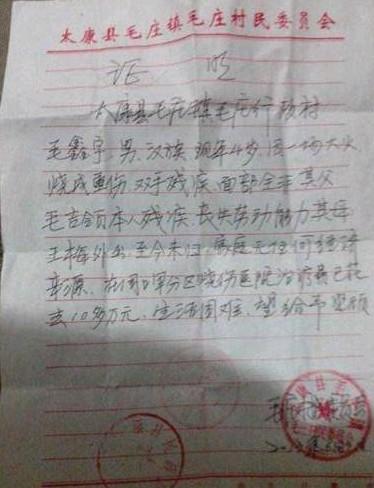 太康县毛庄镇毛庄村民委员会
证 明
太康县毛庄镇毛庄行政村
毛鑫宇,男,汉族,现年4岁,因一场大火
烧成重伤,双手残疾,面部全毁其父
毛吉领本人残疾,丧失劳动能力其母
王梅外出,至今未归,家庭无任何经济
来源,在周口军分区烧伤医院治疗费已花
去10多万元,生活困难,望给予照顾